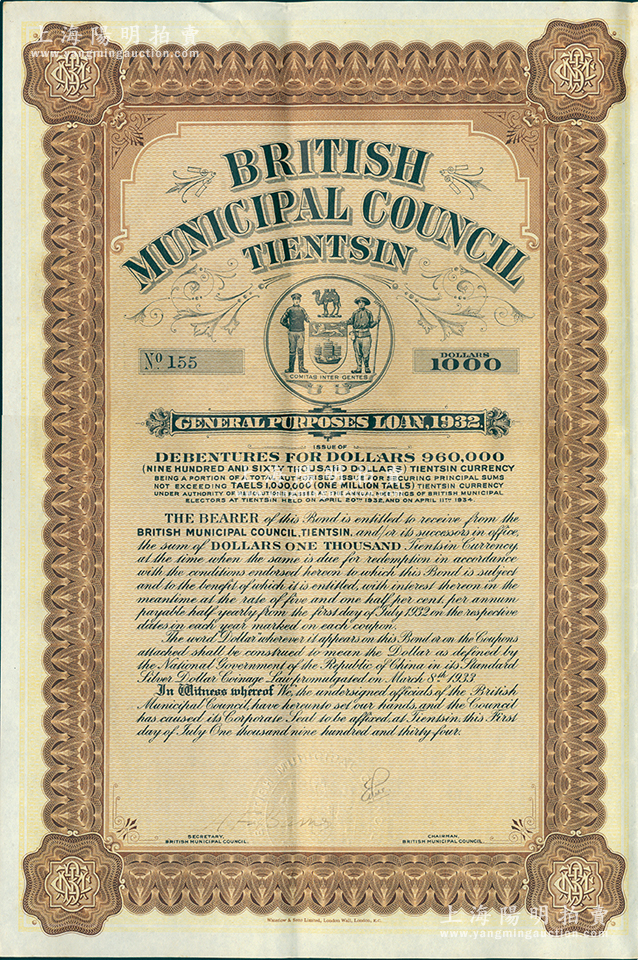 上海陽明拍賣
www.yangmingauction.com
BRITISH
MUNICIPAL COUNCIL
TIENTSIN
COMITAS INTER GENTES
No 155
DOLLARS
1000
GENERAL PURPOSES LOAN, 1932
ISSUE OF
DEBENTURES FOR DOLLARS 960,000
(NINE HUNDRED AND SIXTY THOUSAND DOLLARS) TIENTSIN CURRENCY
BEING A PORTION OF A TOTAL AUTHORISED ISSUE FOR SECURING PRINCIPAL SUMS
NOT EXCEEDING TAELS 1,000,000 (ONE MILLION TAELS) TIENTSIN CURRENCY
UNDER AUTHORITY OF RESOLUTIONS PASSED AT THE ANNUAL MEETINGS OF BRITISH MUNICIPAL
ELECTORS AT TIENTSIN HELD ON APRIL 20TH 1932, AND ON APRIL 11TH 1934.
THE BEARER of this Bond is entitled to receive from the
BRITISH MUNICIPAL COUNCIL, TIENTSIN, and/or its successors in office,
the sum of DOLLARS ONE THOUSAND Tientsin Currency,
at the time when the same is due for redemption in accordance
with the conditions endorsed hereon to which this Bond is subject
and to the benefit of which it is entitled, with interest thereon in the
meantime at the rate of five and one half per cent per annum
payable half yearly from the first day of July 1932 on the respective
dates in each year marked on each coupon.
The word "Dollar" wherever it appears on this Bond or on the Coupons
attached shall be construed to mean the Dollar as defined by
the National Government of the Republic of China in its Standard
Silver Dollar Coinage Law promulgated on March 8th 1933
In Witness whereof We, the undersigned officials of the British
Municipal Council, have hereunto set our hands, and the Council
has caused its Corporate Seal to be affixed, at Tientsin, this First
day of July One thousand nine hundred and thirty-four.
BRITISH MUNICIPAL
SECRETARY,
BRITISH MUNICIPAL COUNCIL.
CHAIRMAN,
BRITISH MUNICIPAL COUNCIL.
Waterlow & Sons Limited, London Wall, London, E.C.
上海陽明拍賣
www.yangmingauction.com